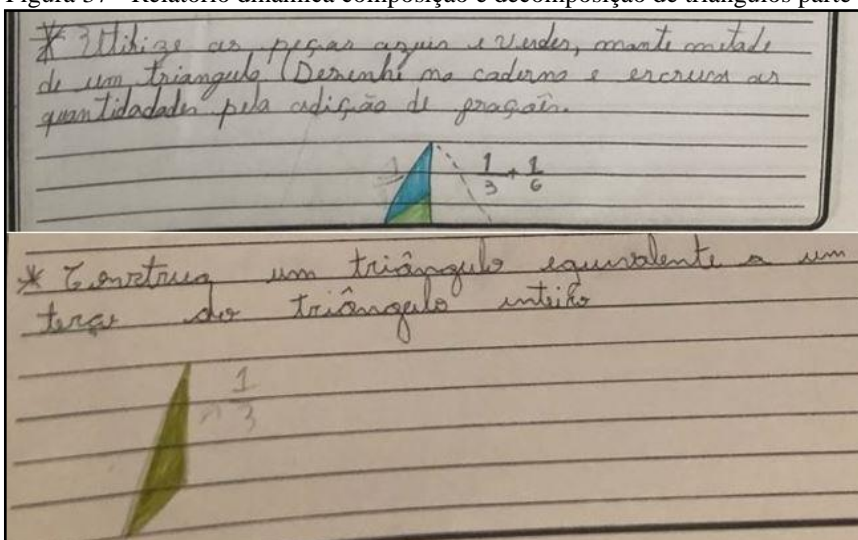 Figura 37 - Relatório dinâmica composição e decomposição de triângulos parte
* Utilize as peças azuis e verdes, monte metade
de um triangulo (Desenhe no caderno e escreva as
quantidadades pela adição de fraçoẽs.
1/3 + 1/6
* Construa um triângulo equivalente a um
terço do triângulo inteiro
1/3